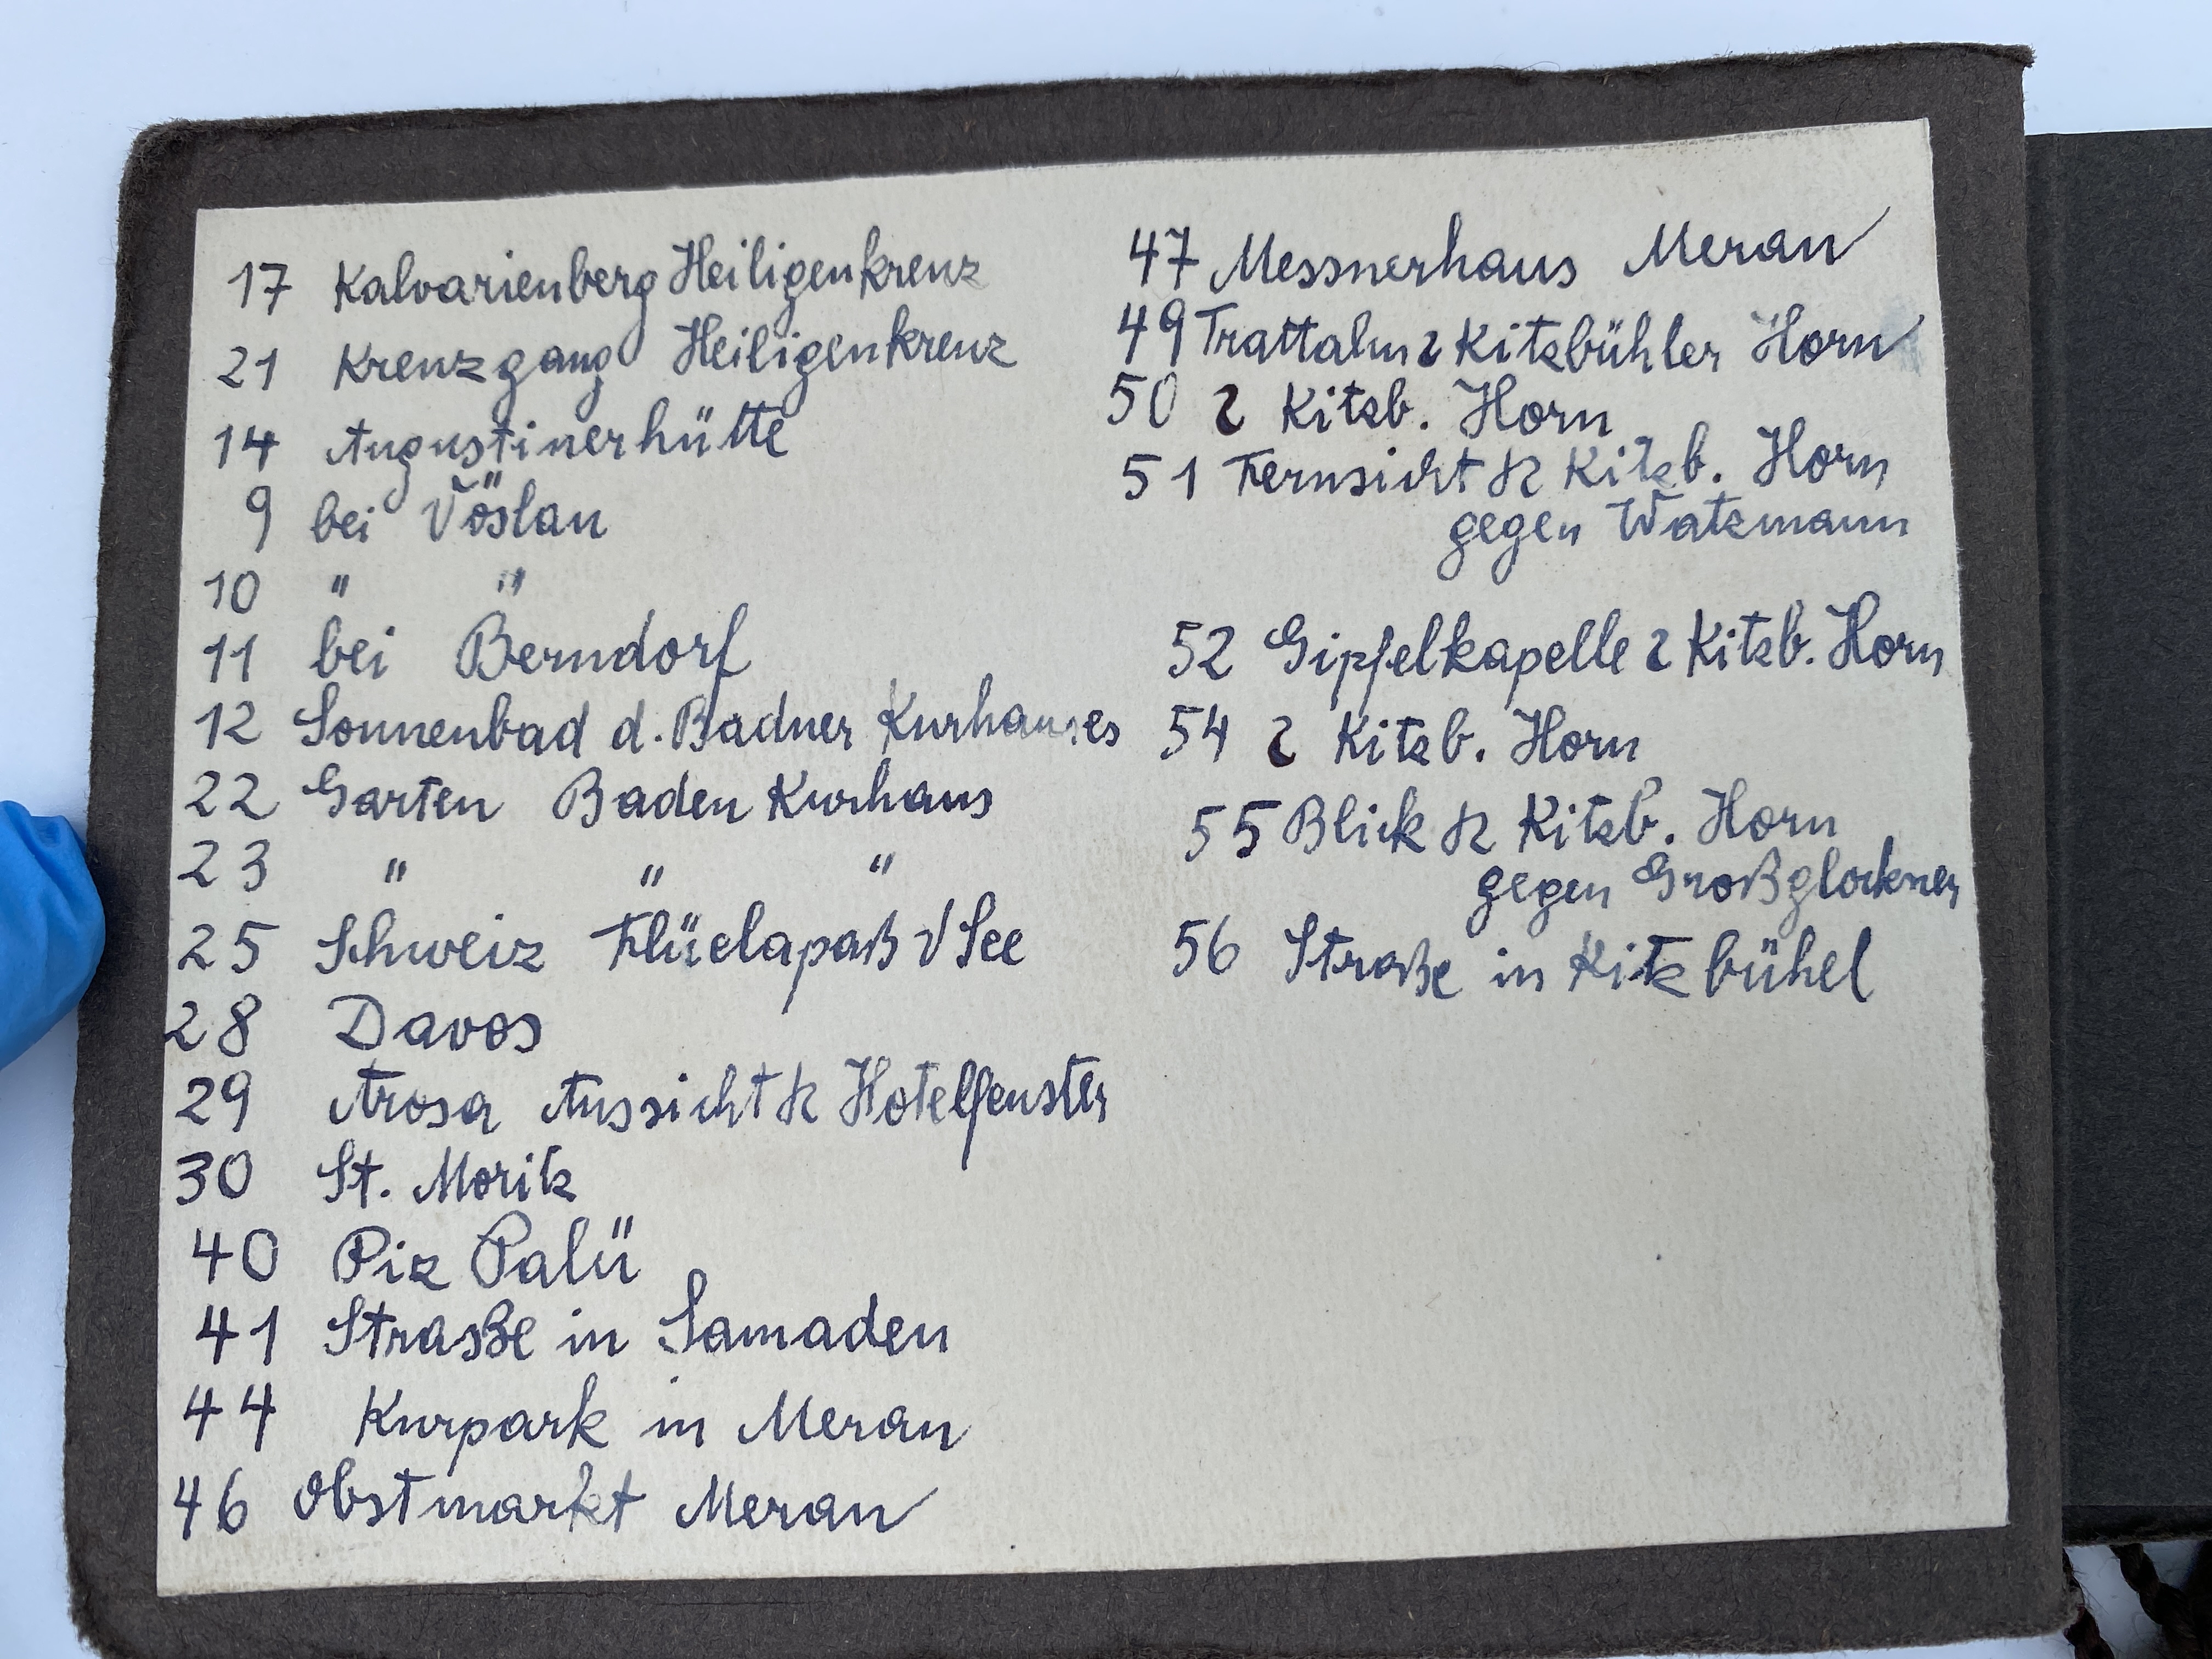 17 Kalvarienberg Heiligenkreuz
21 Kreuzgang Heiligenkreuz
14 Augustinerhütte
9 bei Vöslau
10 " "
11 bei Berndorf
12 Sonnenbad d. Badner Kurhauses
22 Garten Baden Kurhaus
23 " " "
25 Schweiz Flüelapaß See
28 Davos
29 Arosa Aussicht Hotelfenster
30 St. Moritz
40 Piz Palü
41 Straße in Samaden
44 Kurpark in Meran
46 Obstmarkt Meran
47 Messnerhaus Meran
49 Trattalm Kitzbühler Horn
50 Kitzb. Horn
51 Fernsicht Kitzb. Horn
gegen Watzmann
52 Gipfelkapelle Kitzb. Horn
54 Kitzb. Horn
55 Blick Kitzb. Horn
gegen Großglockner
56 Straße in Kitzbühel